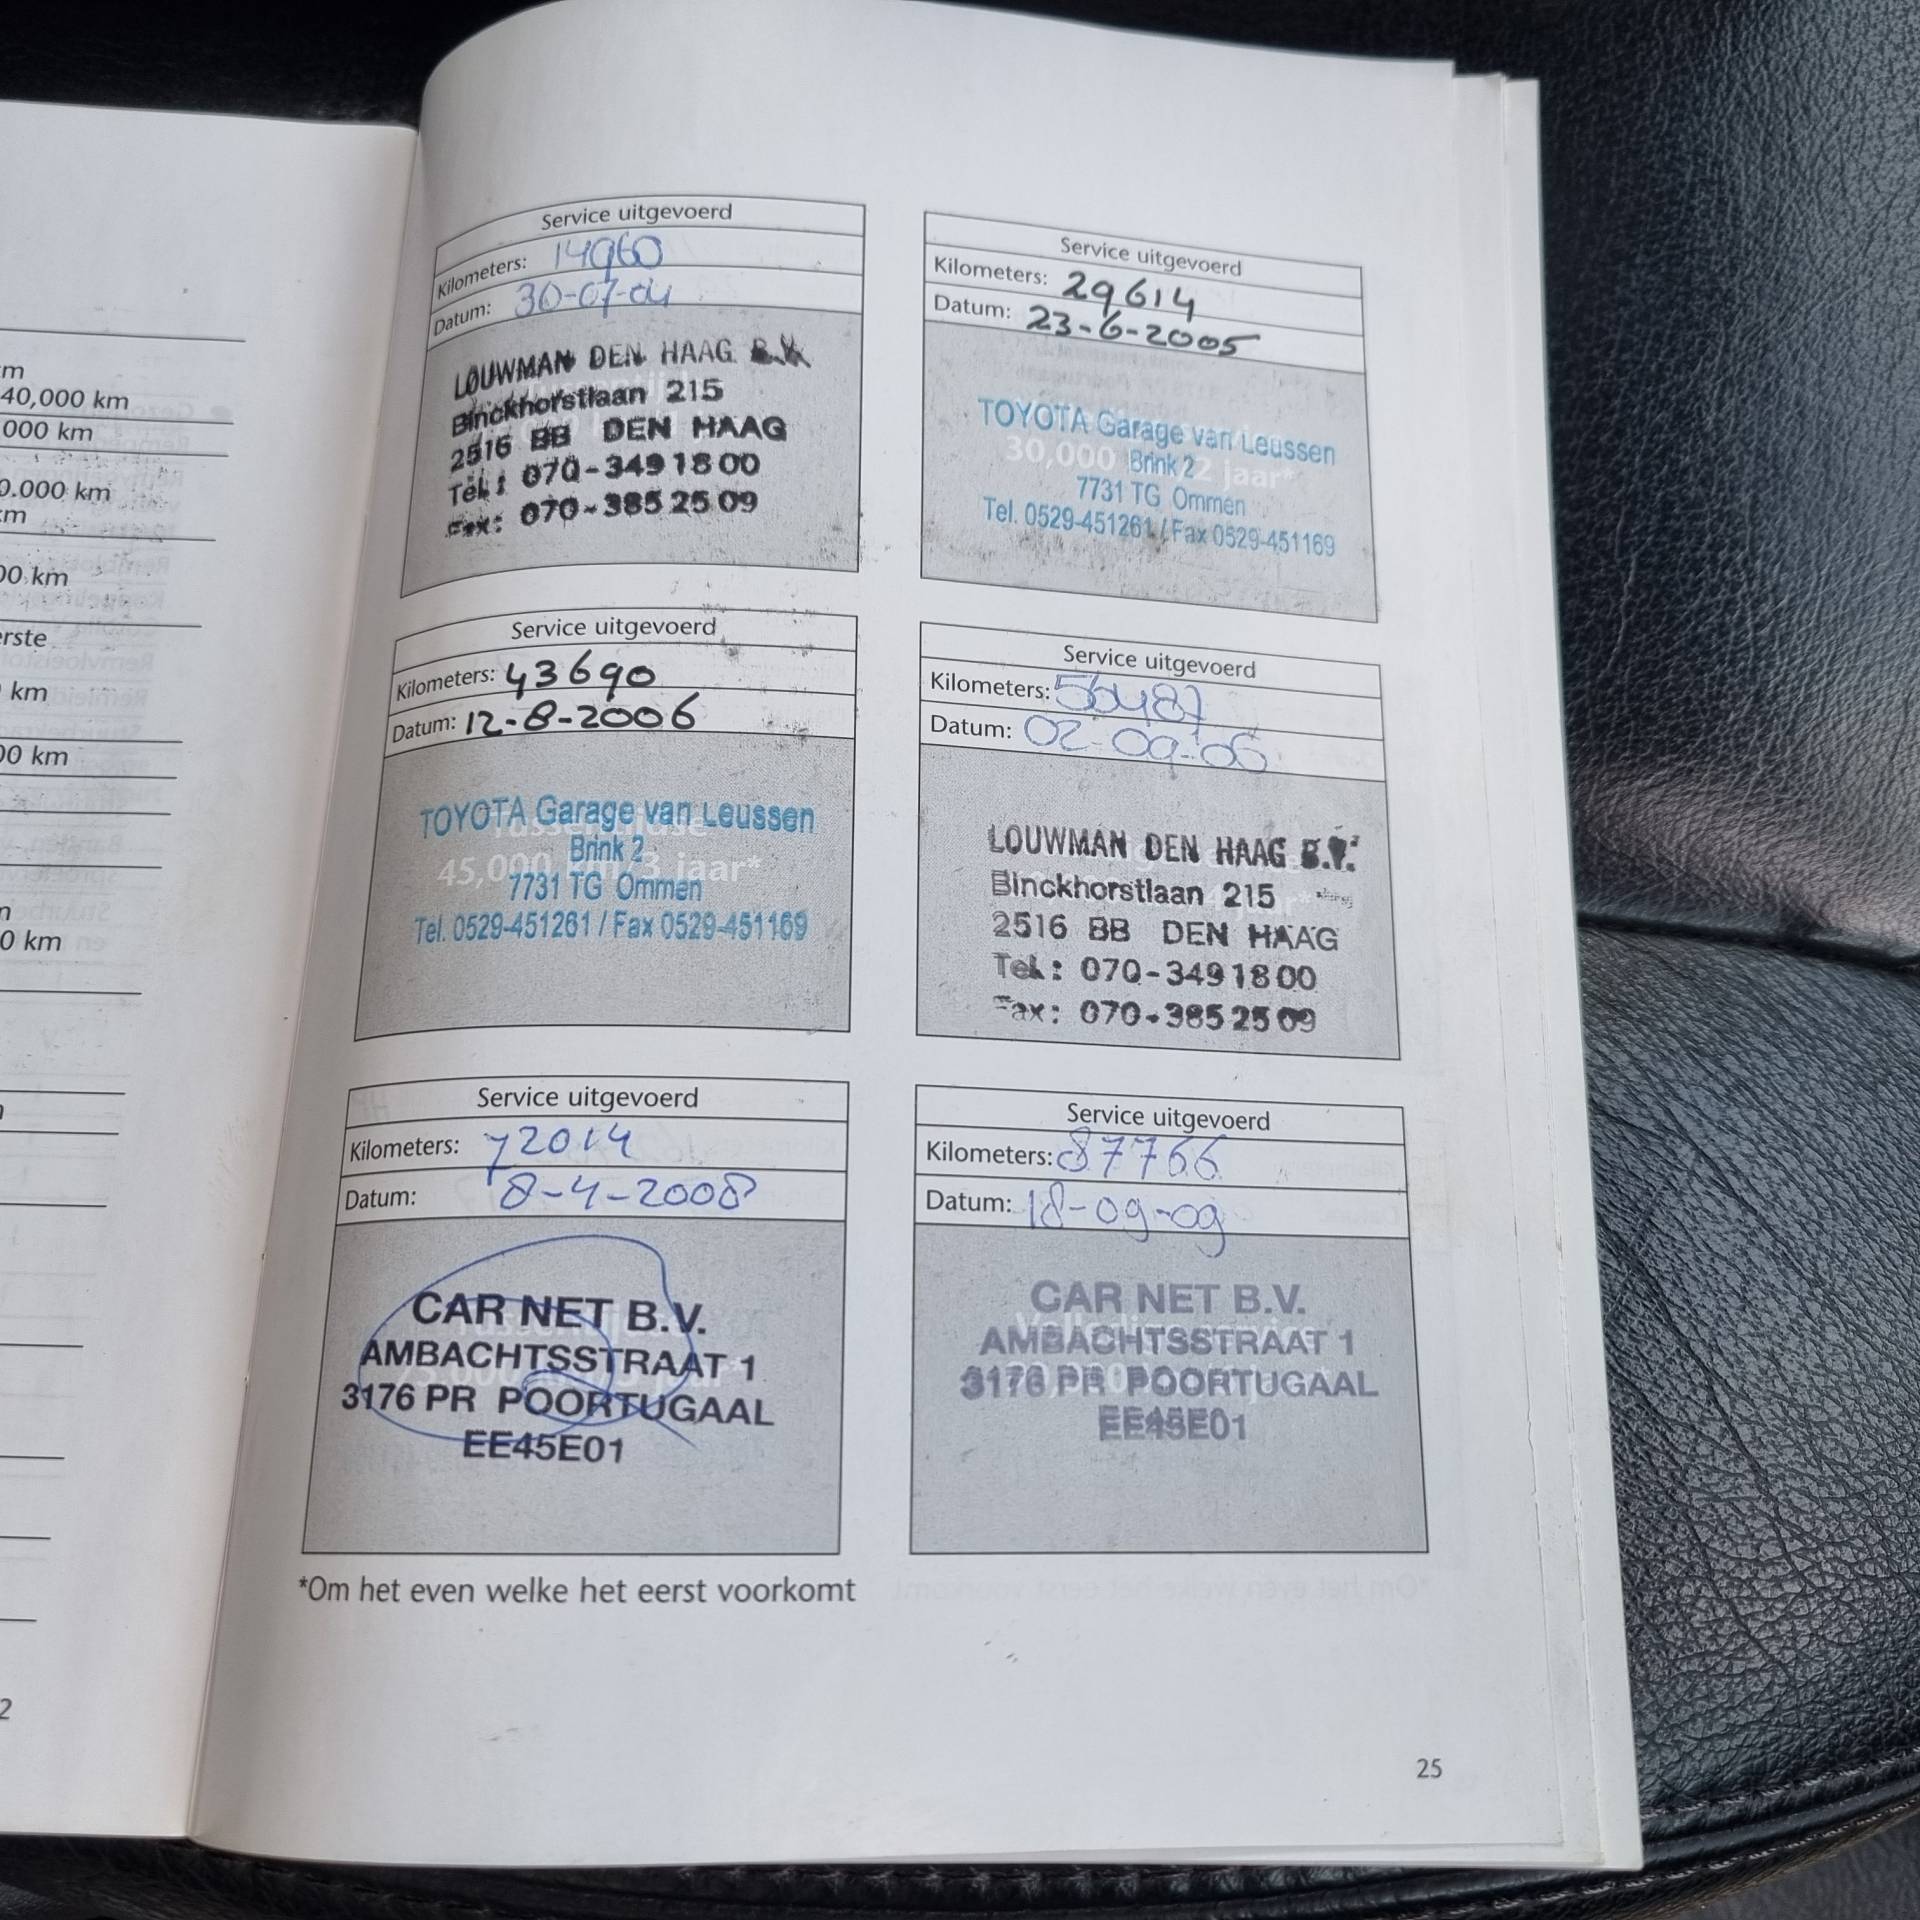 m
40,000 km
000 km
0.000 km
km
00 km
erste
km
00 km
n
0 km
2
Service uitgevoerd
Kilometers: 14960
Datum: 30-07-04
LOUWMAN DEN HAAG B.V.
Binckhorstlaan 215
2516 BB DEN HAAG
Tel: 070-349 18 00
Fax: 070-385 25 09
Service uitgevoerd
Kilometers: 29614
Datum: 23-6-2005
TOYOTA Garage van Leussen
30,000 2 jaar*
Brink 2
7731 TG Ommen
Tel. 0529-451261 / Fax 0529-451169
Service uitgevoerd
Kilometers: 43690
Datum: 12-8-2006
TOYOTA Garage van Leussen
Brink 2
45,000 km/3 jaar*
7731 TG Ommen
Tel. 0529-451261 / Fax 0529-451169
Service uitgevoerd
Kilometers: 56487
Datum: 02-09-06
LOUWMAN DEN HAAG B.V.
Binckhorstlaan 215
2516 BB DEN HAAG
Tel.: 070-349 18 00
Fax: 070-385 25 09
Service uitgevoerd
Kilometers: 72014
Datum: 8-4-2008
CAR NET B.V.
AMBACHTSSTRAAT 1
3176 PR POORTUGAAL
EE45E01
Service uitgevoerd
Kilometers: 87766
Datum: 18-09-09
CAR NET B.V.
AMBACHTSSTRAAT 1
3176 PR POORTUGAAL
EE45E01
*Om het even welke het eerst voorkomt
25